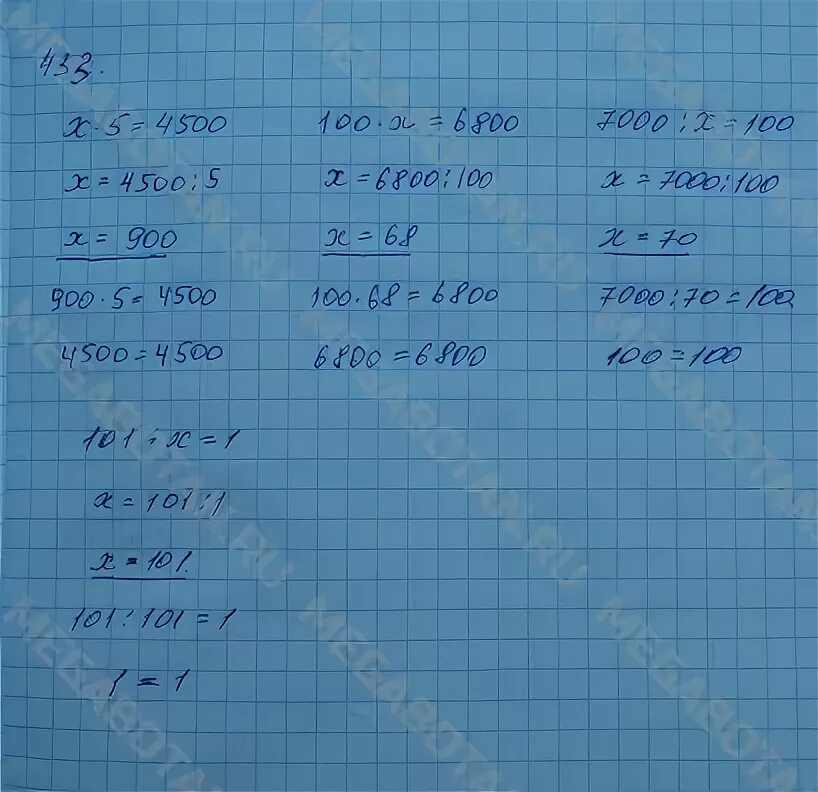 433.
x · 5 = 4500
x = 4500 : 5
x = 900
900 · 5 = 4500
4500 = 4500
100 · x = 6800
x = 6800 : 100
x = 68
100 · 68 = 6800
6800 = 6800
7000 : x = 100
x = 7000 : 100
x = 70
7000 : 70 = 100
100 = 100
101 : x = 1
x = 101 : 1
x = 101.
101 : 101 = 1
1 = 1
MEGABOTAN.RU